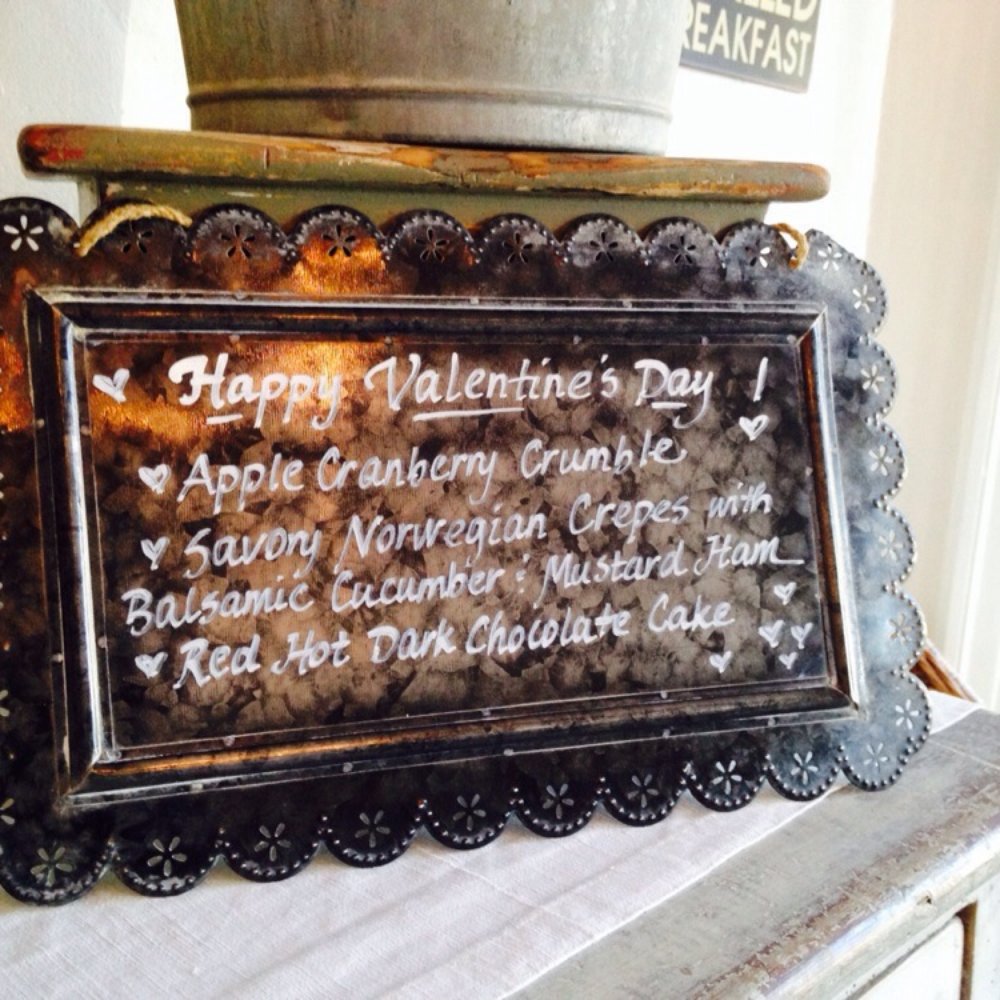 REAKFAST
Happy Valentine's Day !
Apple Cranberry Crumble
Savory Norwegian Crepes with
Balsamic Cucumber & Mustard Ham
Red Hot Dark Chocolate Cake